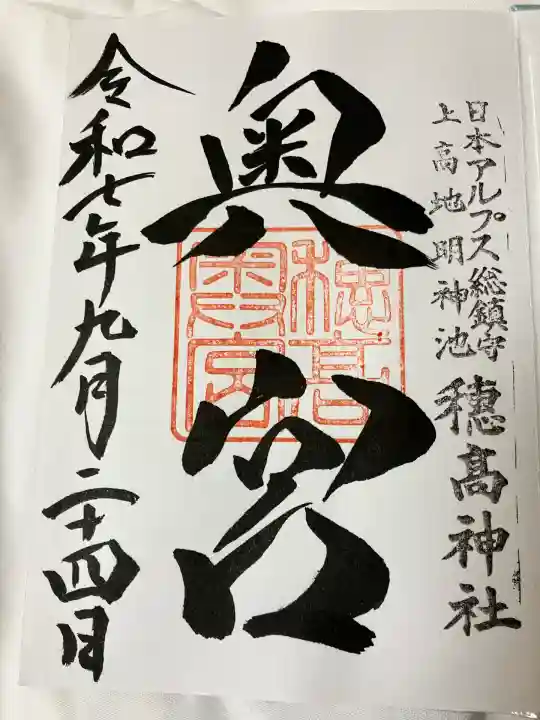 日本アルプス総鎮守
上高地明神池
穂髙神社
奥宮
穂髙
奥宮
令和七年九月二十四日